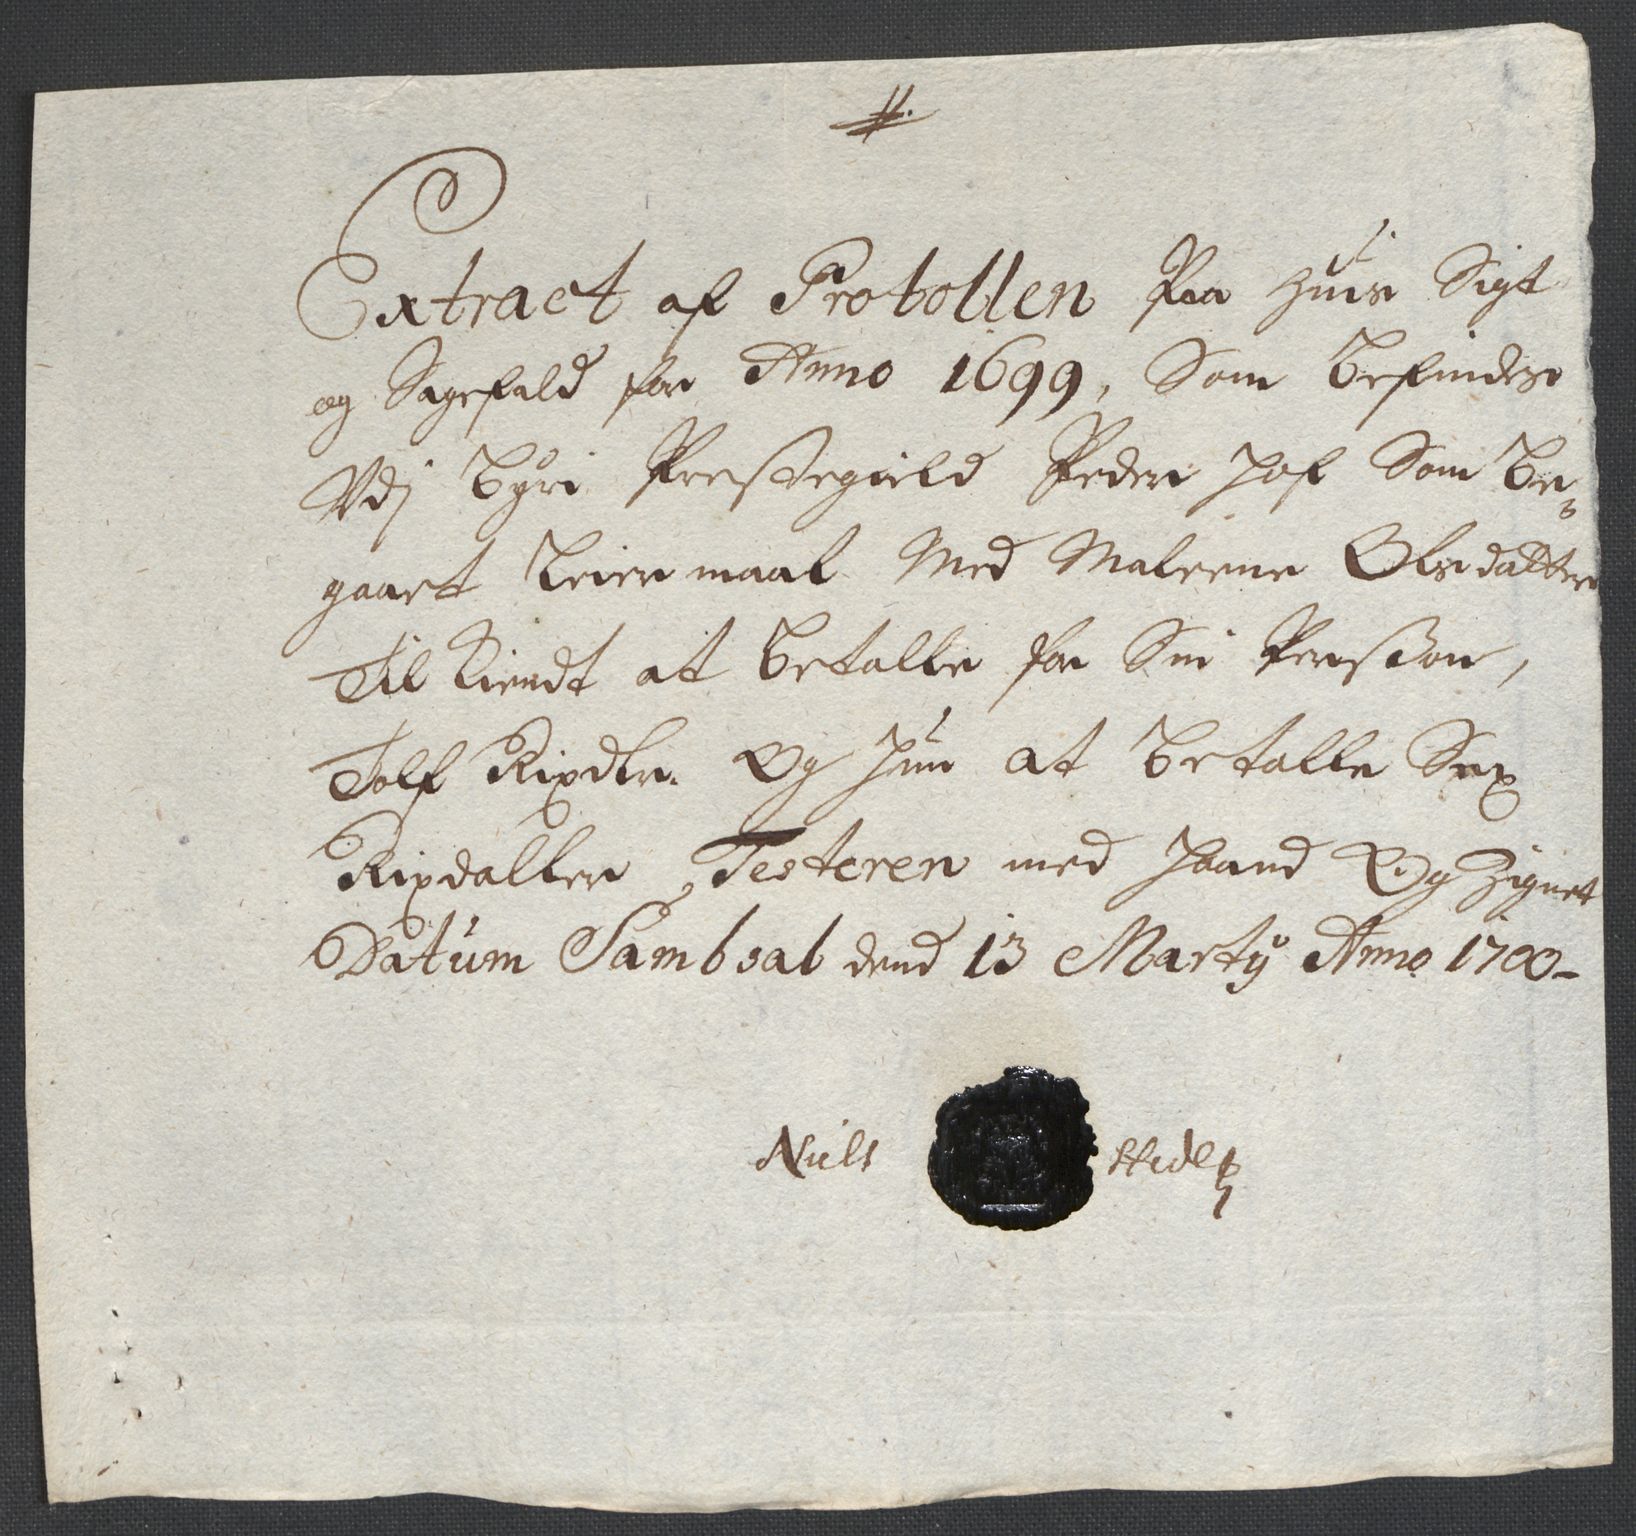 Extract af Protollen Paa huis Sigt
og Sagefald for Anno 1699, Som befindes
Vdj Byri Prestegield Peder Hof Som be¬
gaaet Leiermaal Med Maleene Olsdatter
Til Kiendt at betalle for Sin Persson,
Tolf Rixdlr. Og Hun at betalle Sex
Rixdaller Testerer med Haand Og Zignet
Datum Sambsal dend 13 Martÿ Anno 1700-
Niels